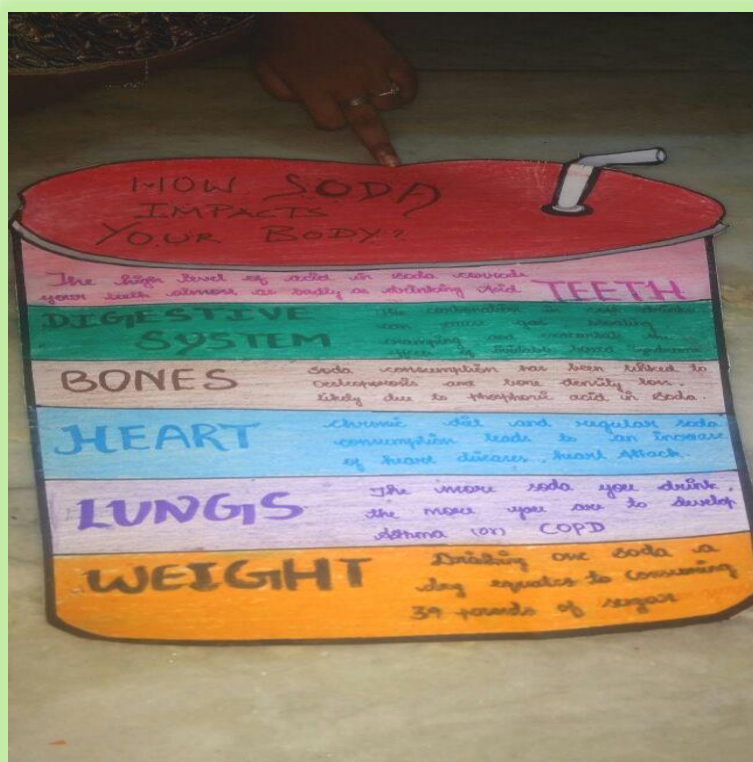 HOW SODA
IMPACTS
YOUR BODY?
The high level of acid in soda corrode
your teeth almost as badly as drinking acid
TEETH
DIGESTIVE
SYSTEM
The carbonation in soft drinks
can cause gas, bloating
cramping and
effect of bowel syndrome
BONES
Soda consumption has been linked to
Osteoporosis and bone density loss.
likely due to phosphoric acid in soda.
HEART
Chronic diet and regular soda
consumption leads to an increase
of heart diseases, heart Attack.
LUNGS
The more soda you drink,
the more you are to develop
Asthma (or) COPD
WEIGHT
Drinking one soda a
day equates to consuming
39 pounds of sugar